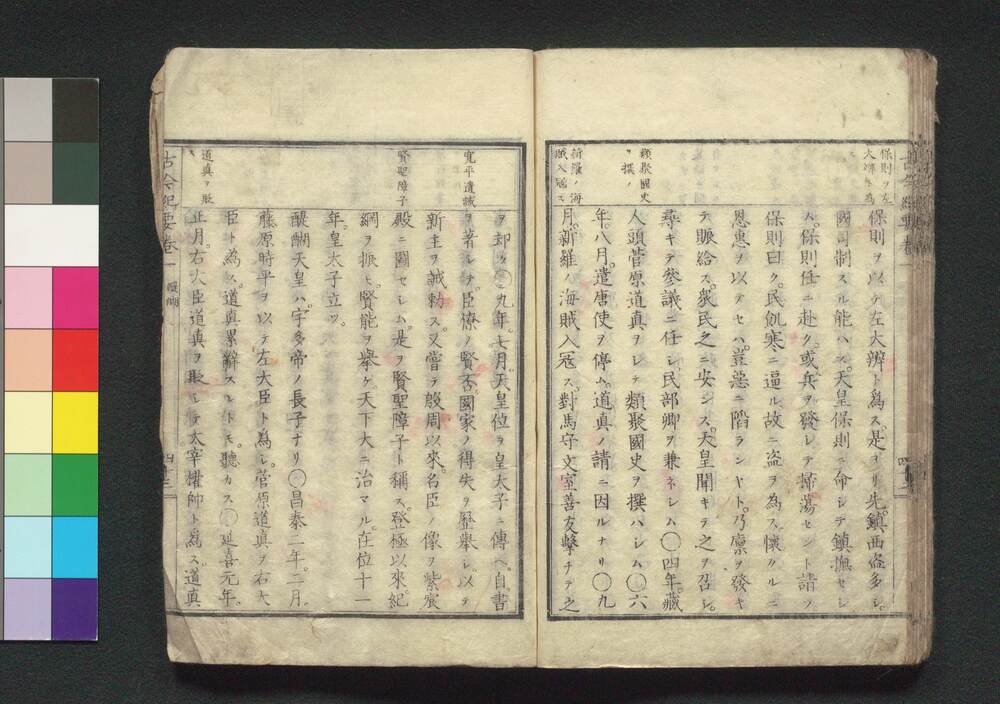 保則ヲ左
大辨ト為
保則ヲ以テ左大辨ト為ス。是ヨリ先。鎮西盗多シ。
國司制スル能ハス。天皇保則ニ命シテ鎮撫セシ
ム。保則任ニ赴ク。或兵ヲ發シテ掃蕩セント請フ
保則曰ク。民飢寒ニ逼ル故ニ盗ヲ為ス懷クルニ
恩惠ヲ以テセハ。豈惡ニ陷ランヤト。乃廩ヲ發キ
テ賑給ス。衆民之ニ安ンス。天皇聞キテ之ヲ召シ。
尋キテ參議ニ任シ民部卿ヲ兼ネシム〇四年。藏
類聚國史
ヲ撰ム
人頭菅原道真ヲシテ類聚國史ヲ撰ハシム〇六
年。八月。遣唐使ヲ停ム。道真ノ請ニ因ルナリ〇九
新羅ノ海
賊入冦ス
月。新羅ノ海賊入冦ス。對馬守文室善友擊チテ之
ヲ却ク〇九年。七月。天皇位ヲ皇太子ニ傳ヘ。自書
寛平遺誡
ヲ著シテ。臣僚ノ賢否。國家ノ得失ヲ歷舉シ。以テ
新主ヲ誡勅ス。又嘗テ殷周以來。名臣ノ像ヲ紫宸
賢聖障子
殿ニ圖セシム。是ヲ賢聖障子ト稱ス。登極以來。紀
綱ヲ振ヒ。賢能ヲ擧ケ天下大ニ治マル。在位十一
年。皇太子立ツ。
醍醐天皇ハ。宇多帝ノ長子ナリ〇昌泰二年。二月。
藤原時平ヲ以テ左大臣ト為シ。菅原道真ヲ右大
臣ト為ス。道真累辭スレトモ。聽カス〇延喜元年。
道真ヲ貶
ス
正月。右大臣道真ヲ貶シテ太宰權帥ト為ス。道真
古今紀要卷一 醍醐
四十三